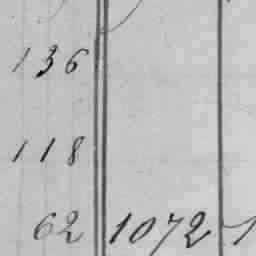 136
118
62 1072